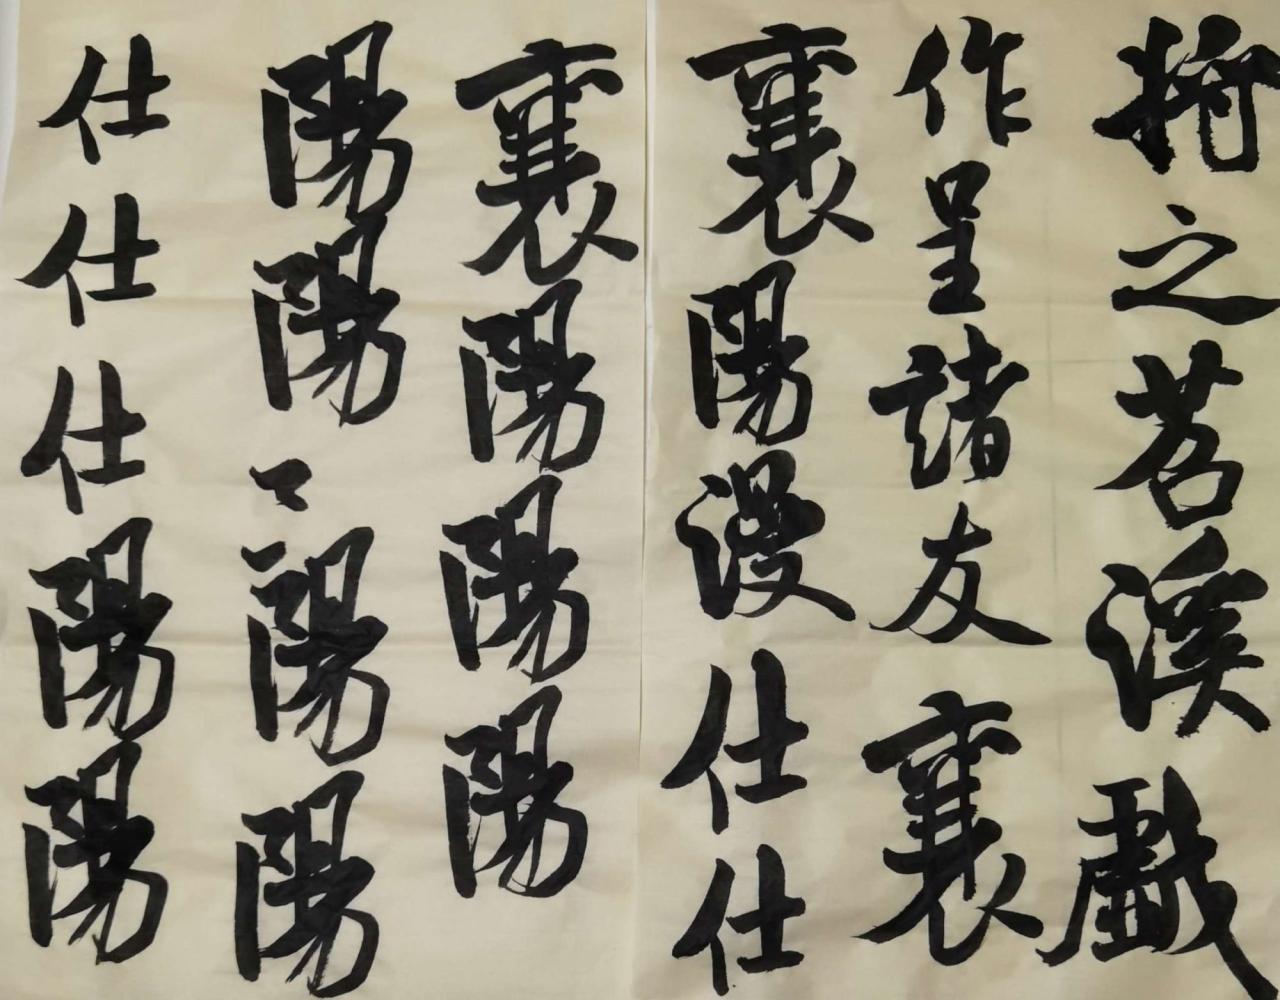 将之苕溪戲
作呈諸友襄
襄陽漫仕仕
襄陽陽陽
陽陽陽陽
仕仕仕陽陽